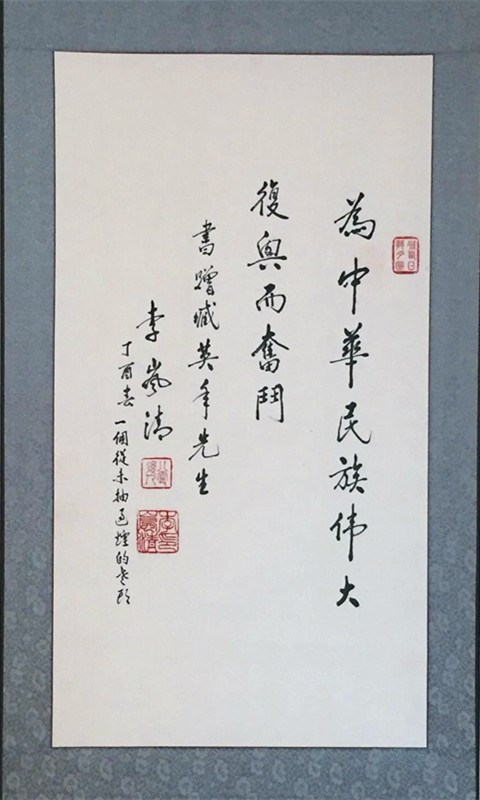 為中華民族伟大
復興而奮鬥
書贈臧英年先生
李嵐清
丁酉春 一個從未抽過煙的老頭
李嵐清